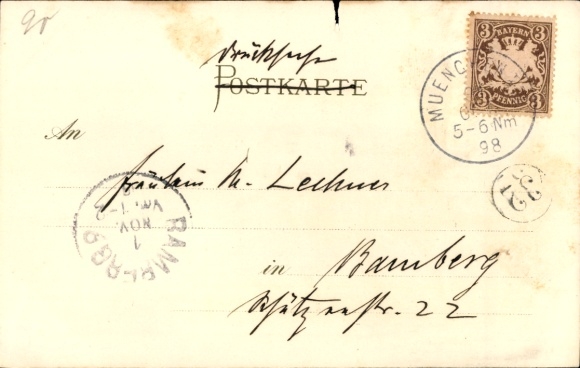 90
Drucksache
POSTKARTE
BAYERN
3 3
3 3
PFENNIG
MUENC
5-6 Nm
98
An
Fräulein M. Lechner
32
BAMBERG 2
1
NOV.
VM. 1-
in Bamberg
Schützenstr. 22